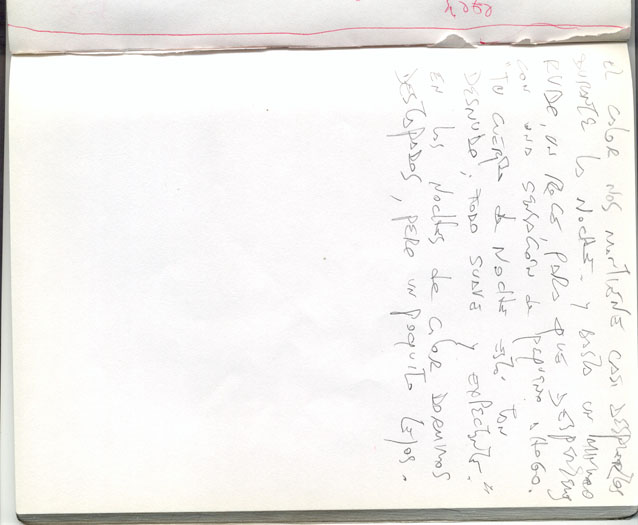 El calor nos mantiene casi despiertos
durante la noche. Y basta un mínimo
ruido, un roce, para que despiertes
con una sensación de pequeño ahogo.
"Tu cuerpo de noche está tan
desnudo; todo suave y expectante."
En las noches de calor dormimos
destapados, pero un poquito lejos.